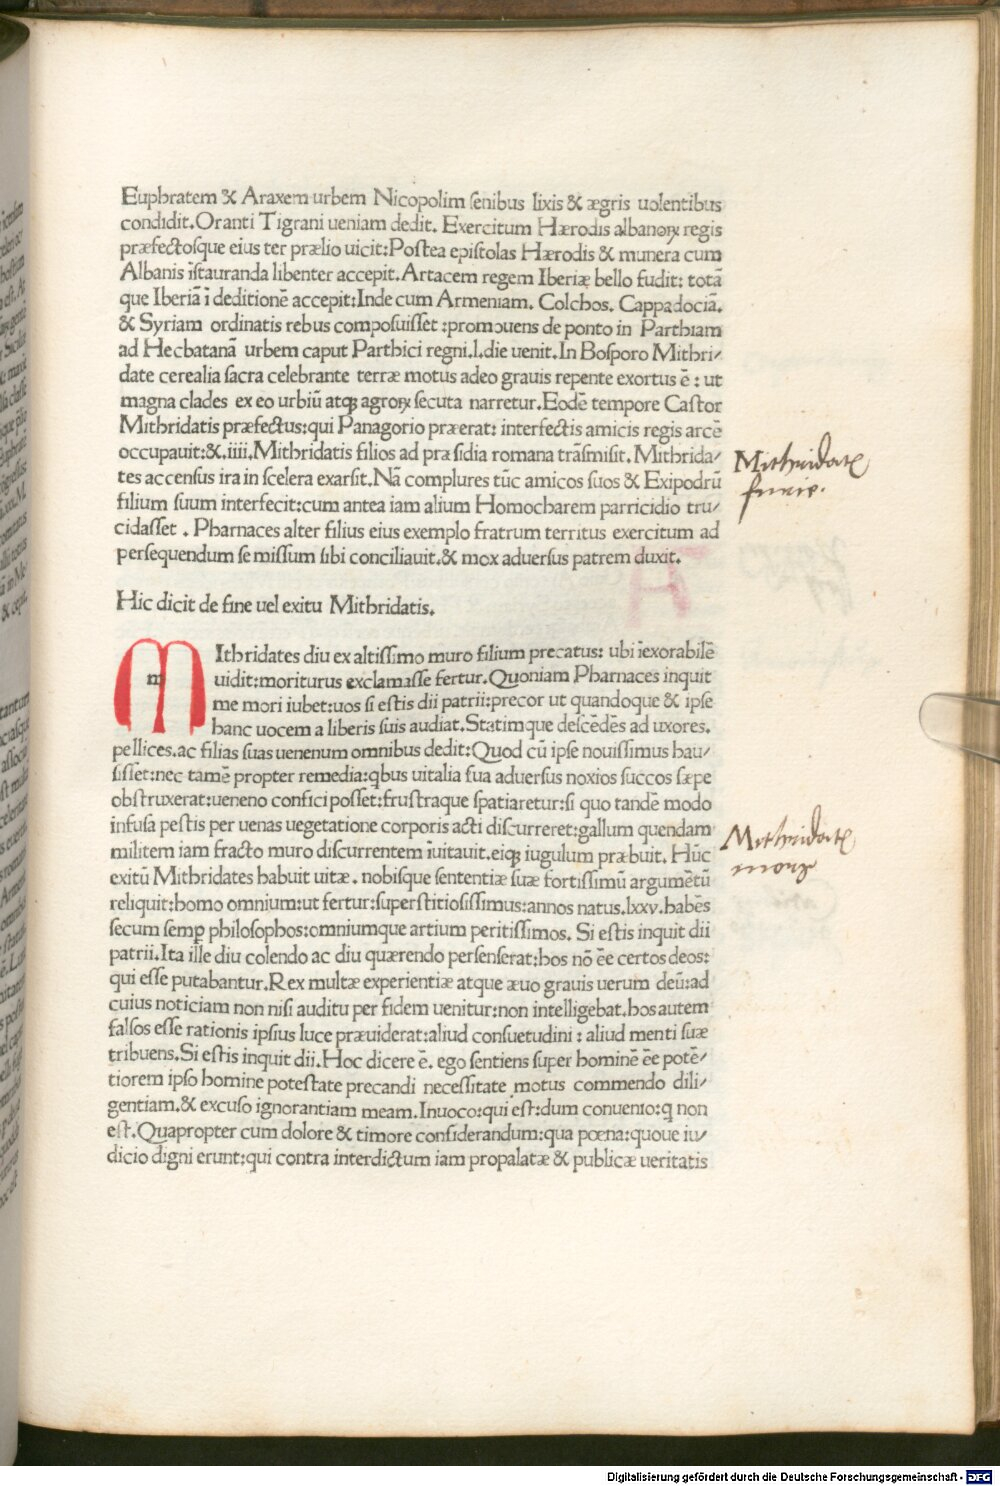 Euphratem & Araxem urbem Nicopolim ſenibus lixis & ægris uolentibus
condidit. Oranti Tigrani ueniam dedit. Exercitum Hærodis albanoꝝ regis
præfectosque eius ter prælio uicit: Poſtea epiſtolas Hærodis & munera cum
Albanis iſtauranda libenter accepit. Artacem regem Iberiæ bello fudit: totā
que Iberiā ī deditionē accepit: Inde cum Armeniam. Colchos. Cappadociā.
& Syriam ordinatis rebus compoſuiſſet :promouens de ponto in Parthiam
ad Hecbatanā urbem caput Parthici regni. l. die uenit. In Boſporo Mithri/
date cerealia ſacra celebrante terræ motus adeo grauis repente exortus ē : ut
magna clades ex eo urbiū atqꝫ agroꝝ ſecuta narretur. Eodē tempore Caſtor
Mithridatis præfectus: qui Panagorio præerat: interfectis amicis regis arcē
occupauit: &. iiii. Mithridatis filios ad præſidia romana trāſmiſit. Mithrida/
tes accenſus ira in ſcelera exarſit. Nā complures tūc amicos ſuos & Exipodrū
filium ſuum interfecit: cum antea iam alium Homocharem parricidio tru/
cidaſſet . Pharnaces alter filius eius exemplo fratrum territus exercitum ad
perſequendum ſe miſſum ſibi conciliauit. & mox aduerſus patrem duxit.
Mithridatꝭ
furie.
Hic dicit de fine uel exitu Mithridatis.
M
m
Ithridates diu ex altiſſimo muro filium precatus: ubi īexorabilē
uidit: moriturus exclamaſſe fertur. Quoniam Pharnaces inquit
me mori iubet: uos ſi eſtis dii patrii: precor ut quandoque & ipſe
hanc uocem a liberis ſuis audiat. Statimque deſcēdēs ad uxores.
pellices. ac filias ſuas uenenum omnibus dedit: Quod cū ipſe nouiſſimus hau/
ſiſſet: nec tamē propter remedia: qbus uitalia ſua aduerſus noxios ſuccos ſæpe
obſtruxerat: ueneno confici poſſet: fruſtraque ſpatiaretur: ſi quo tandē modo
infuſa peſtis per uenas uegetatione corporis acti diſcurreret: gallum quendam
militem iam fracto muro diſcurrentem īuitauit. eiqꝫ iugulum præbuit. Hūc
exitū Mithridates habuit uitæ. nobisque ſententiæ ſuæ fortiſſimū argumētū
reliquit: homo omnium: ut fertur: ſuperſtitioſiſſimus: annos natus. lxxv. habēs
ſecum ſemꝑ philoſophos: omniumque artium peritiſſimos. Si eſtis inquit dii
patrii. Ita ille diu colendo ac diu quærendo perſenſerat: hos nō ēe certos deos:
qui eſſe putabantur. Rex multæ experientiæ atque æuo grauis uerum deū: ad
cuius noticiam non niſi auditu per fidem uenitur: non intelligebat. hos autem
falſos eſſe rationis ipſius luce præuiderat: aliud conſuetudini : aliud menti ſuæ
tribuens. Si eſtis inquit dii. Hoc dicere ē. ego ſentiens ſuper hominē ēe potē/
tiorem ipſo homine poteſtate precandi neceſſitate motus commendo dili/
gentiam. & excuſo ignorantiam meam. Inuoco: qui eſt: dum conuenio: q non
eſt. Quapropter cum dolore & timore conſiderandum: qua pœna: quoue iu/
dicio digni erunt: qui contra interdictum iam propalatæ & publicæ ueritatis
Mithridatꝭ
mors
Digitalisierung gefördert durch die Deutsche Forschungsgemeinschaft - DFG